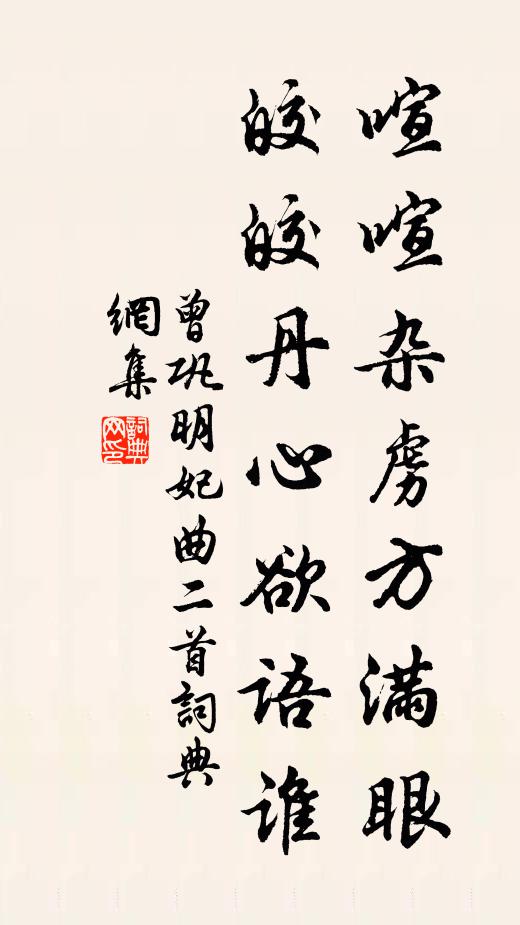 喧喧杂虏方满眼
皎皎丹心欲语谁
曾巩明妃曲二首詞典
網集
詞典網印